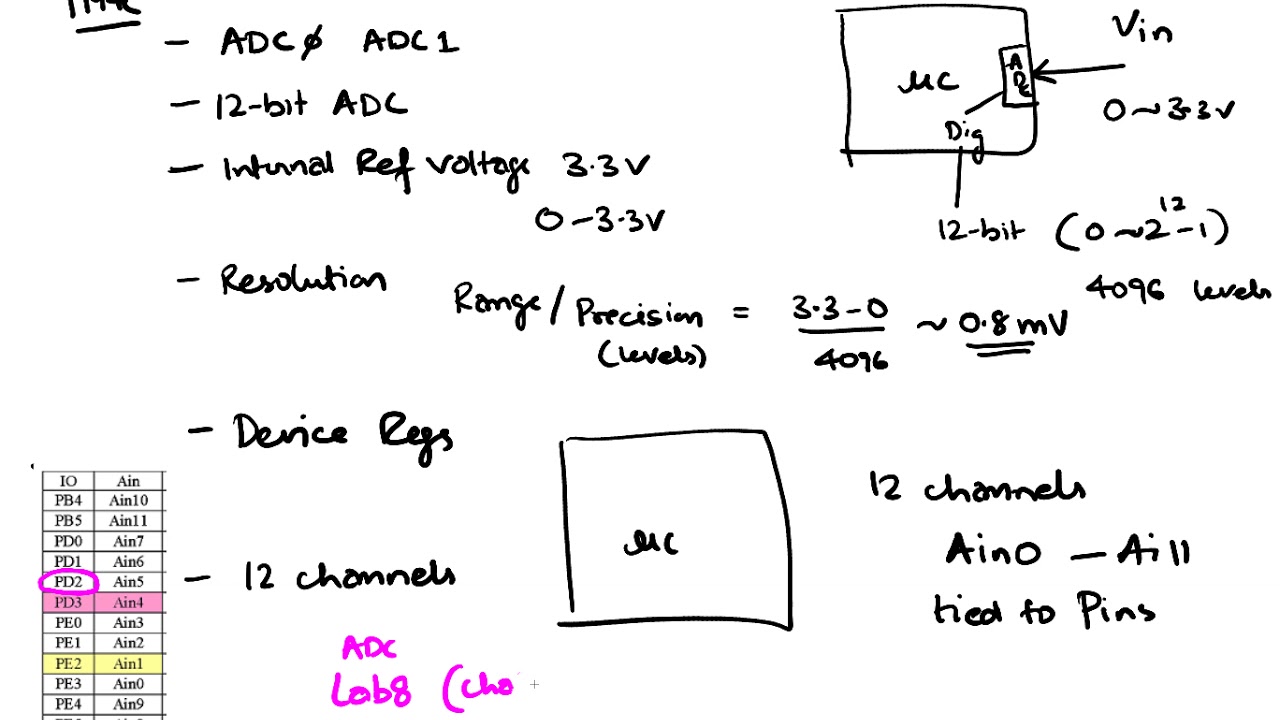 - ADC0 ADC1
- 12-bit ADC
- Internal Ref Voltage 3.3V
0-3.3V
- Resolution
Range/Precision (levels) = 3.3-0 / 4096 ~ 0.8mV
μC
ADC
Dig
Vin
0~3.3V
12-bit (0~2^12-1)
4096 levels
- Device Regs
IO Ain
PB4 Ain10
PB5 Ain11
PD0 Ain7
PD1 Ain6
PD2 Ain5
PD3 Ain4
PE0 Ain3
PE1 Ain2
PE2 Ain1
PE3 Ain0
PE4 Ain9
- 12 channels
μC
12 channels
Ain0 - Ai11
tied to Pins
ADC
Lab8 (cha